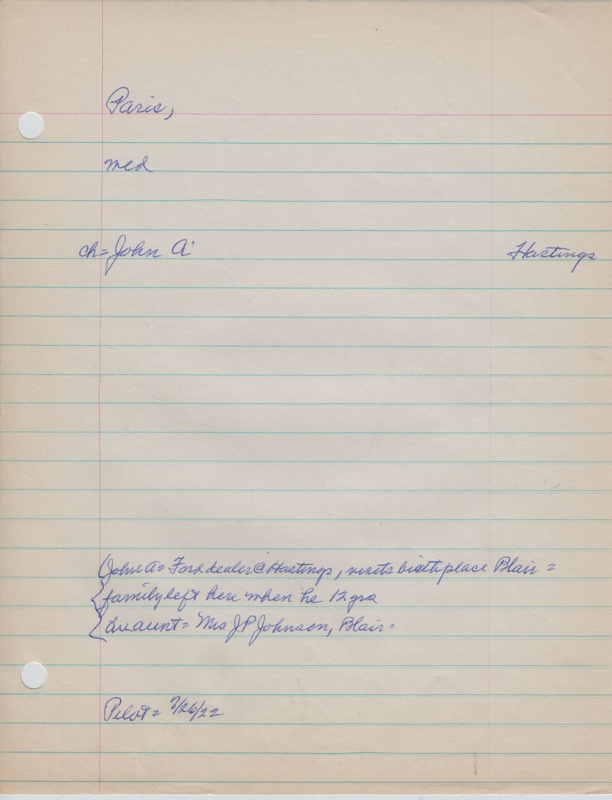 Paris,
med
ch= John A' Hastings
John A= Ford dealer @ Hastings, visits birthplace Blair =
family left here when he 12 yrs
aunt= Mrs J P Johnson, Blair=
Pilot= 7/26/22